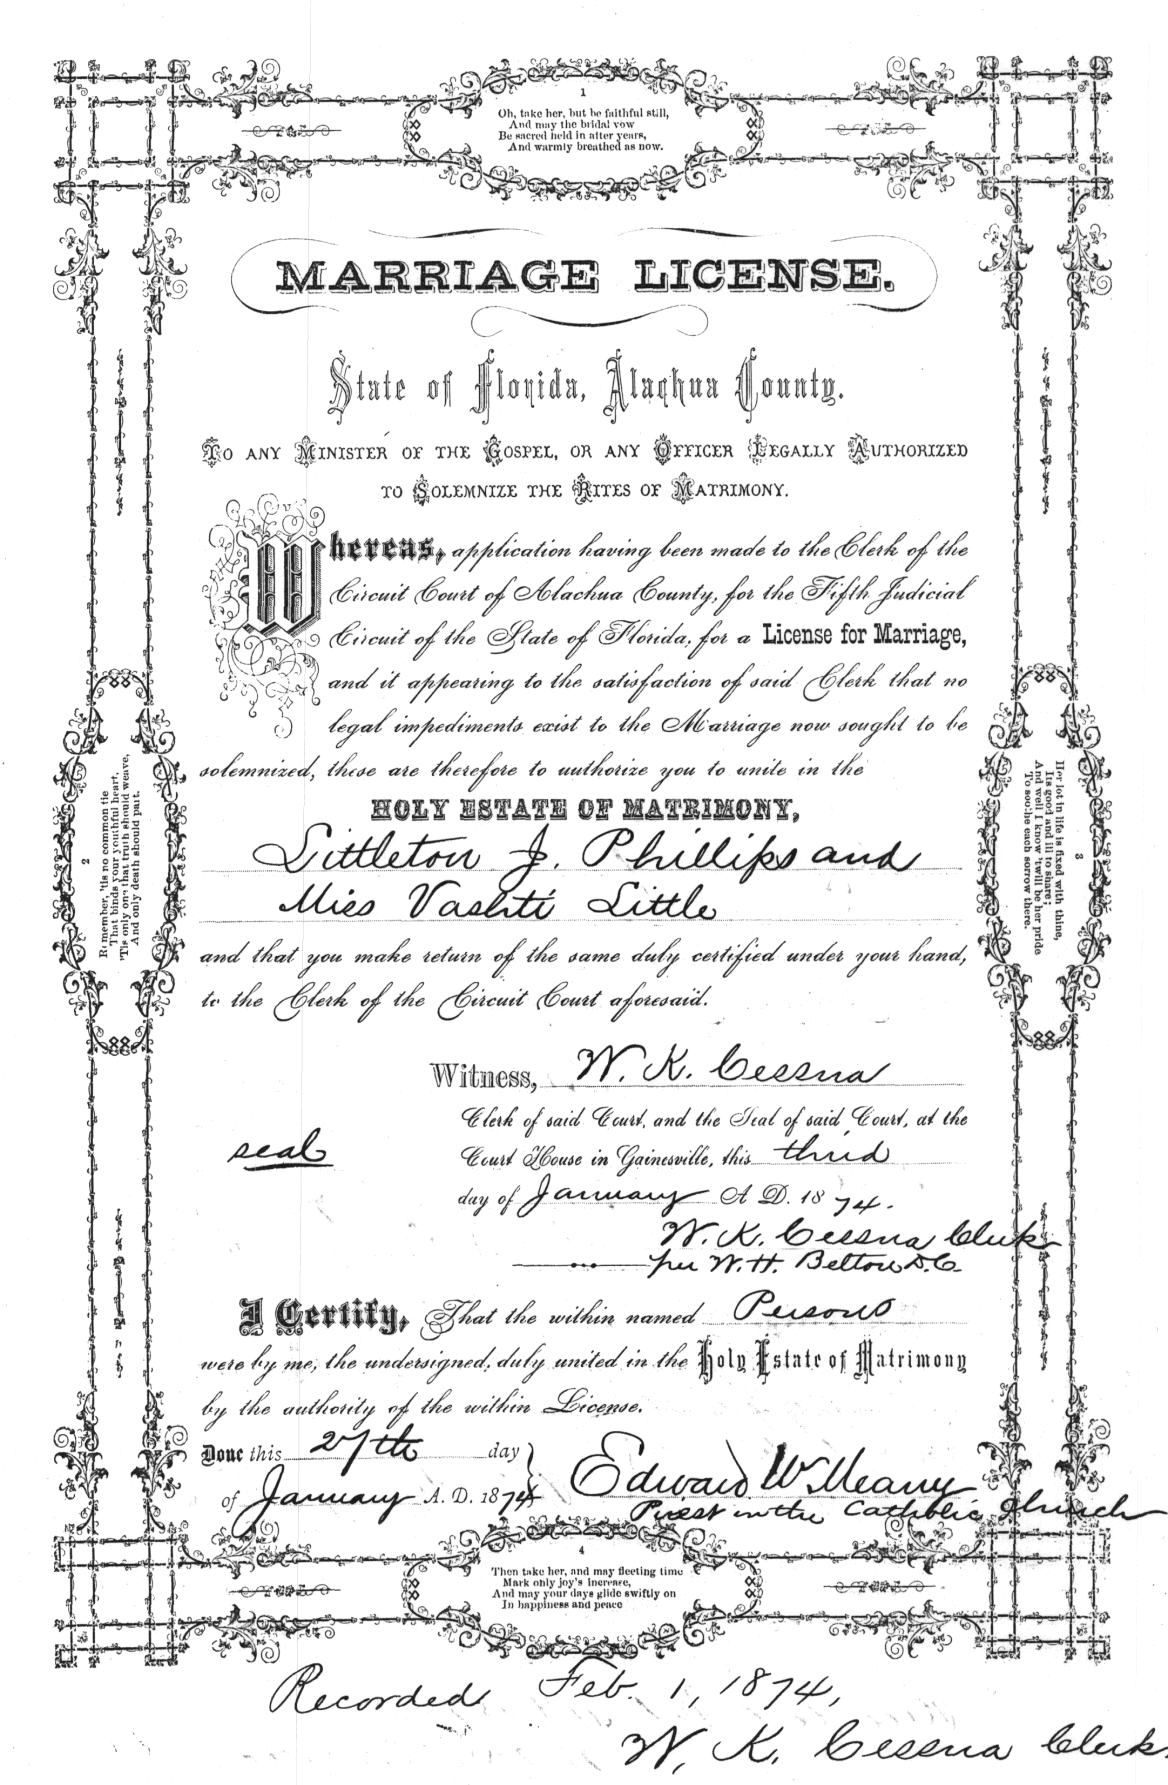 1
Oh, take her, but be faithful still,
And may the bridal vow
Be sacred held in after years,
And warmly breathed as now.
MARRIAGE LICENSE.
State of Florida, Alachua County.
To any Minister of the Gospel, or any Officer Legally Authorized
to Solemnize the Rites of Matrimony.
Whereas, application having been made to the Clerk of the
Circuit Court of Alachua County, for the Fifth Judicial
Circuit of the State of Florida, for a License for Marriage,
and it appearing to the satisfaction of said Clerk that no
legal impediments exist to the Marriage now sought to be
solemnized, these are therefore to authorize you to unite in the
HOLY ESTATE OF MATRIMONY,
Littleton J. Phillips and
Miss Vashti Little
and that you make return of the same duly certified under your hand,
to the Clerk of the Circuit Court aforesaid.
2
Remember, 'tis no common tie
That binds your youthful heart,
'Tis only one that truth should weave,
And only death should part.
3
Her lot in life is fixed with thine,
Its good and ill to share;
And well I know 'twill be her pride
To soothe each sorrow there.
Witness, W. K. Cessna
Clerk of said Court, and the Seal of said Court, at the
seal
Court House in Gainesville, this third
day of January A D. 1874.
W. K. Cessna Clerk
per W. H. Belton D.C.
I Certify, That the within named Persons
were by me, the undersigned, duly united in the Holy Estate of Matrimony
by the authority of the within License.
Done this 27th day
of January A. D. 1874
Edward W Meany
Priest in the Catholic Church
4
Then take her, and may fleeting time
Mark only joy's increase,
And may your days glide swiftly on
In happiness and peace
Recorded Feb. 1, 1874,
W. K. Cessna Clerk